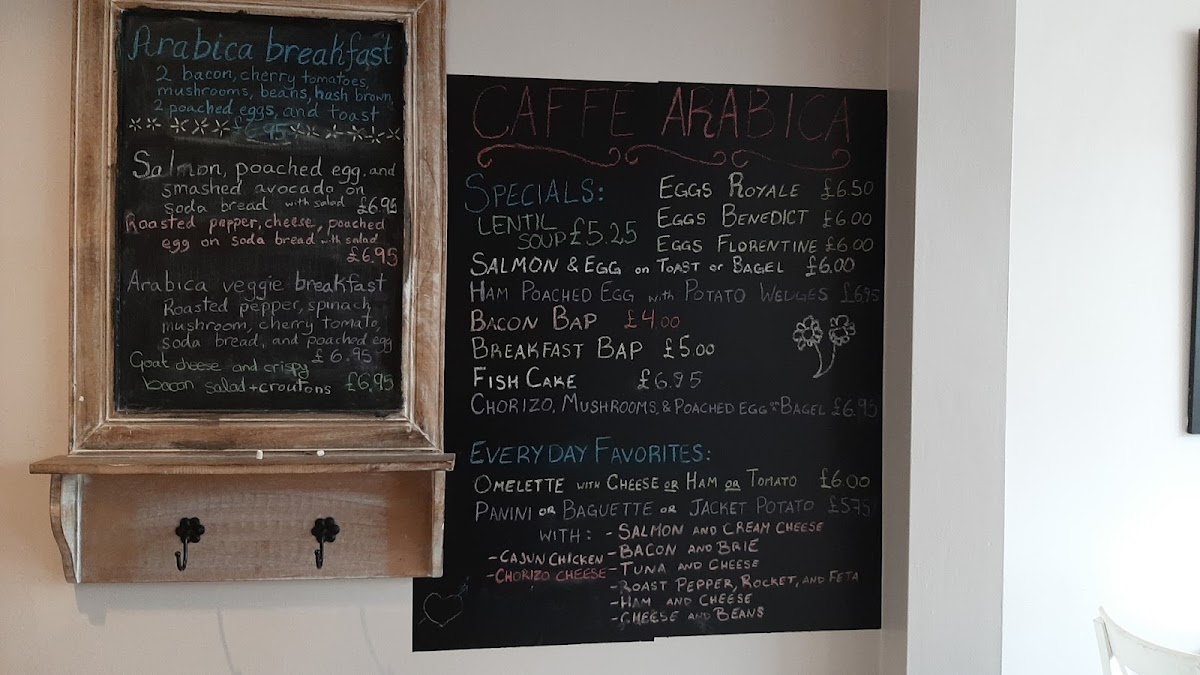 Arabica breakfast
2 bacon, cherry tomatoes,
mushrooms, beans, hash brown,
2 poached eggs, and toast
£6.95
Salmon, poached egg, and
smashed avocado on
soda bread with salad £6.95
Roasted pepper, cheese, poached
egg on soda bread with salad
£6.95
Arabica veggie breakfast
Roasted pepper, spinach,
mushroom, cherry tomato,
soda bread, and poached egg
£6.95
Goat cheese and crispy
bacon salad + croutons £6.95
CAFFE ARABICA
SPECIALS:
LENTIL
SOUP £5.25
EGGS ROYALE £6.50
EGGS BENEDICT £6.00
EGGS FLORENTINE £6.00
SALMON & EGG on TOAST or BAGEL £6.00
HAM POACHED EGG with POTATO WEDGES £6.95
BACON BAP £4.00
BREAKFAST BAP £5.00
FISH CAKE £6.95
CHORIZO, MUSHROOMS, & POACHED EGG on BAGEL £6.95
EVERYDAY FAVORITES:
OMELETTE WITH CHEESE OR HAM OR TOMATO £6.00
PANINI OR BAGUETTE OR JACKET POTATO £5.75
WITH: - SALMON AND CREAM CHEESE
- CAJUN CHICKEN - BACON AND BRIE
- CHORIZO CHEESE - TUNA AND CHEESE
- ROAST PEPPER, ROCKET, AND FETA
- HAM AND CHEESE
- CHEESE AND BEANS